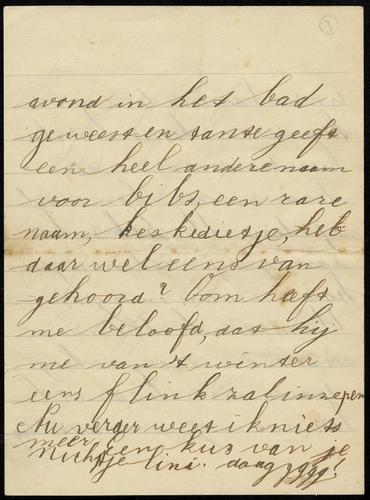 3
avond in het bad
geweest en tante geeft
een heel andere naam
voor bibs, een rare
naam, keskedietje, heb
daar wel eens van
gehoord? Oom haft
me beloofd, dat hij
me van 't winter
eens flink zal inzepen
Nu verder weet ik niets
meer Een kus van je
Nichtje Lini. daagggg!